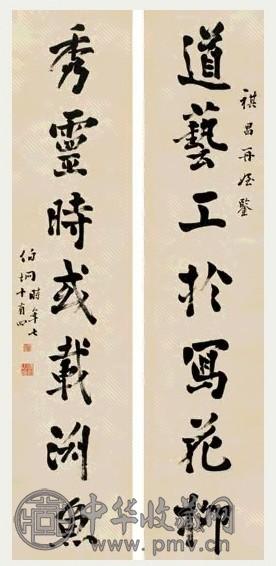 祺昌再姪鑒
道藝工於寫花柳
秀靈時或載渊魚
時年七
十有四
中华收藏网
www.pmv.cn